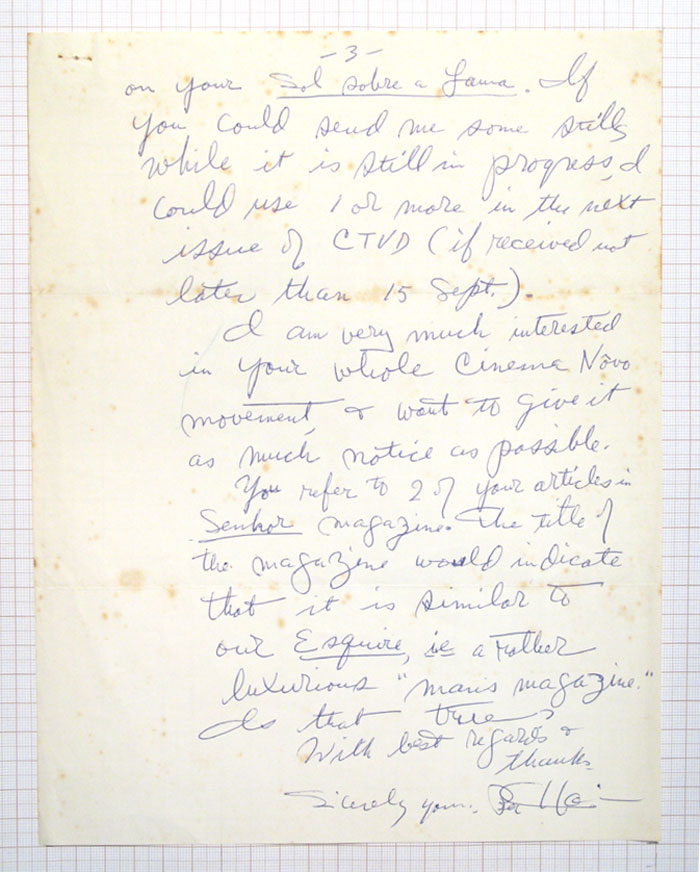 - 3 -
on your Sol sobre a Lama. If
you could send me some stills
while it is still in progress, I
could use 1 or more in the next
issue of CTVD (if received not
later than 15 Sept.).
I am very much interested
in your whole Cinema Nôvo
movement, & want to give it
as much notice as possible.
You refer to 2 of your articles in
Senhor magazine. The title of
the magazine would indicate
that it is similar to
our Esquire, ie a rather
luxurious "man's magazine."
Is that true?
With best regards &
thanks
Sicerely yours.